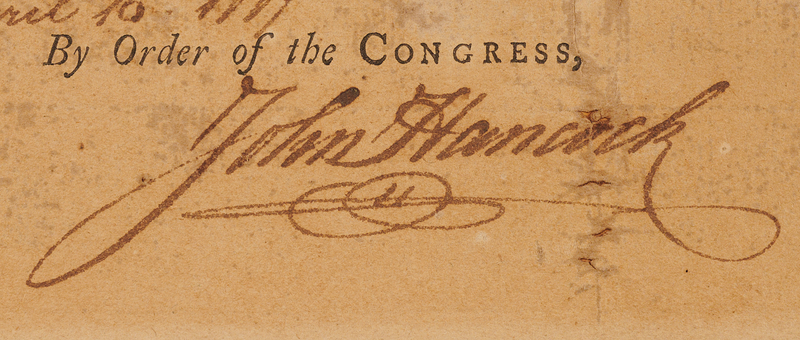 April 16 1777
By Order of the CONGRESS,
John Hancock